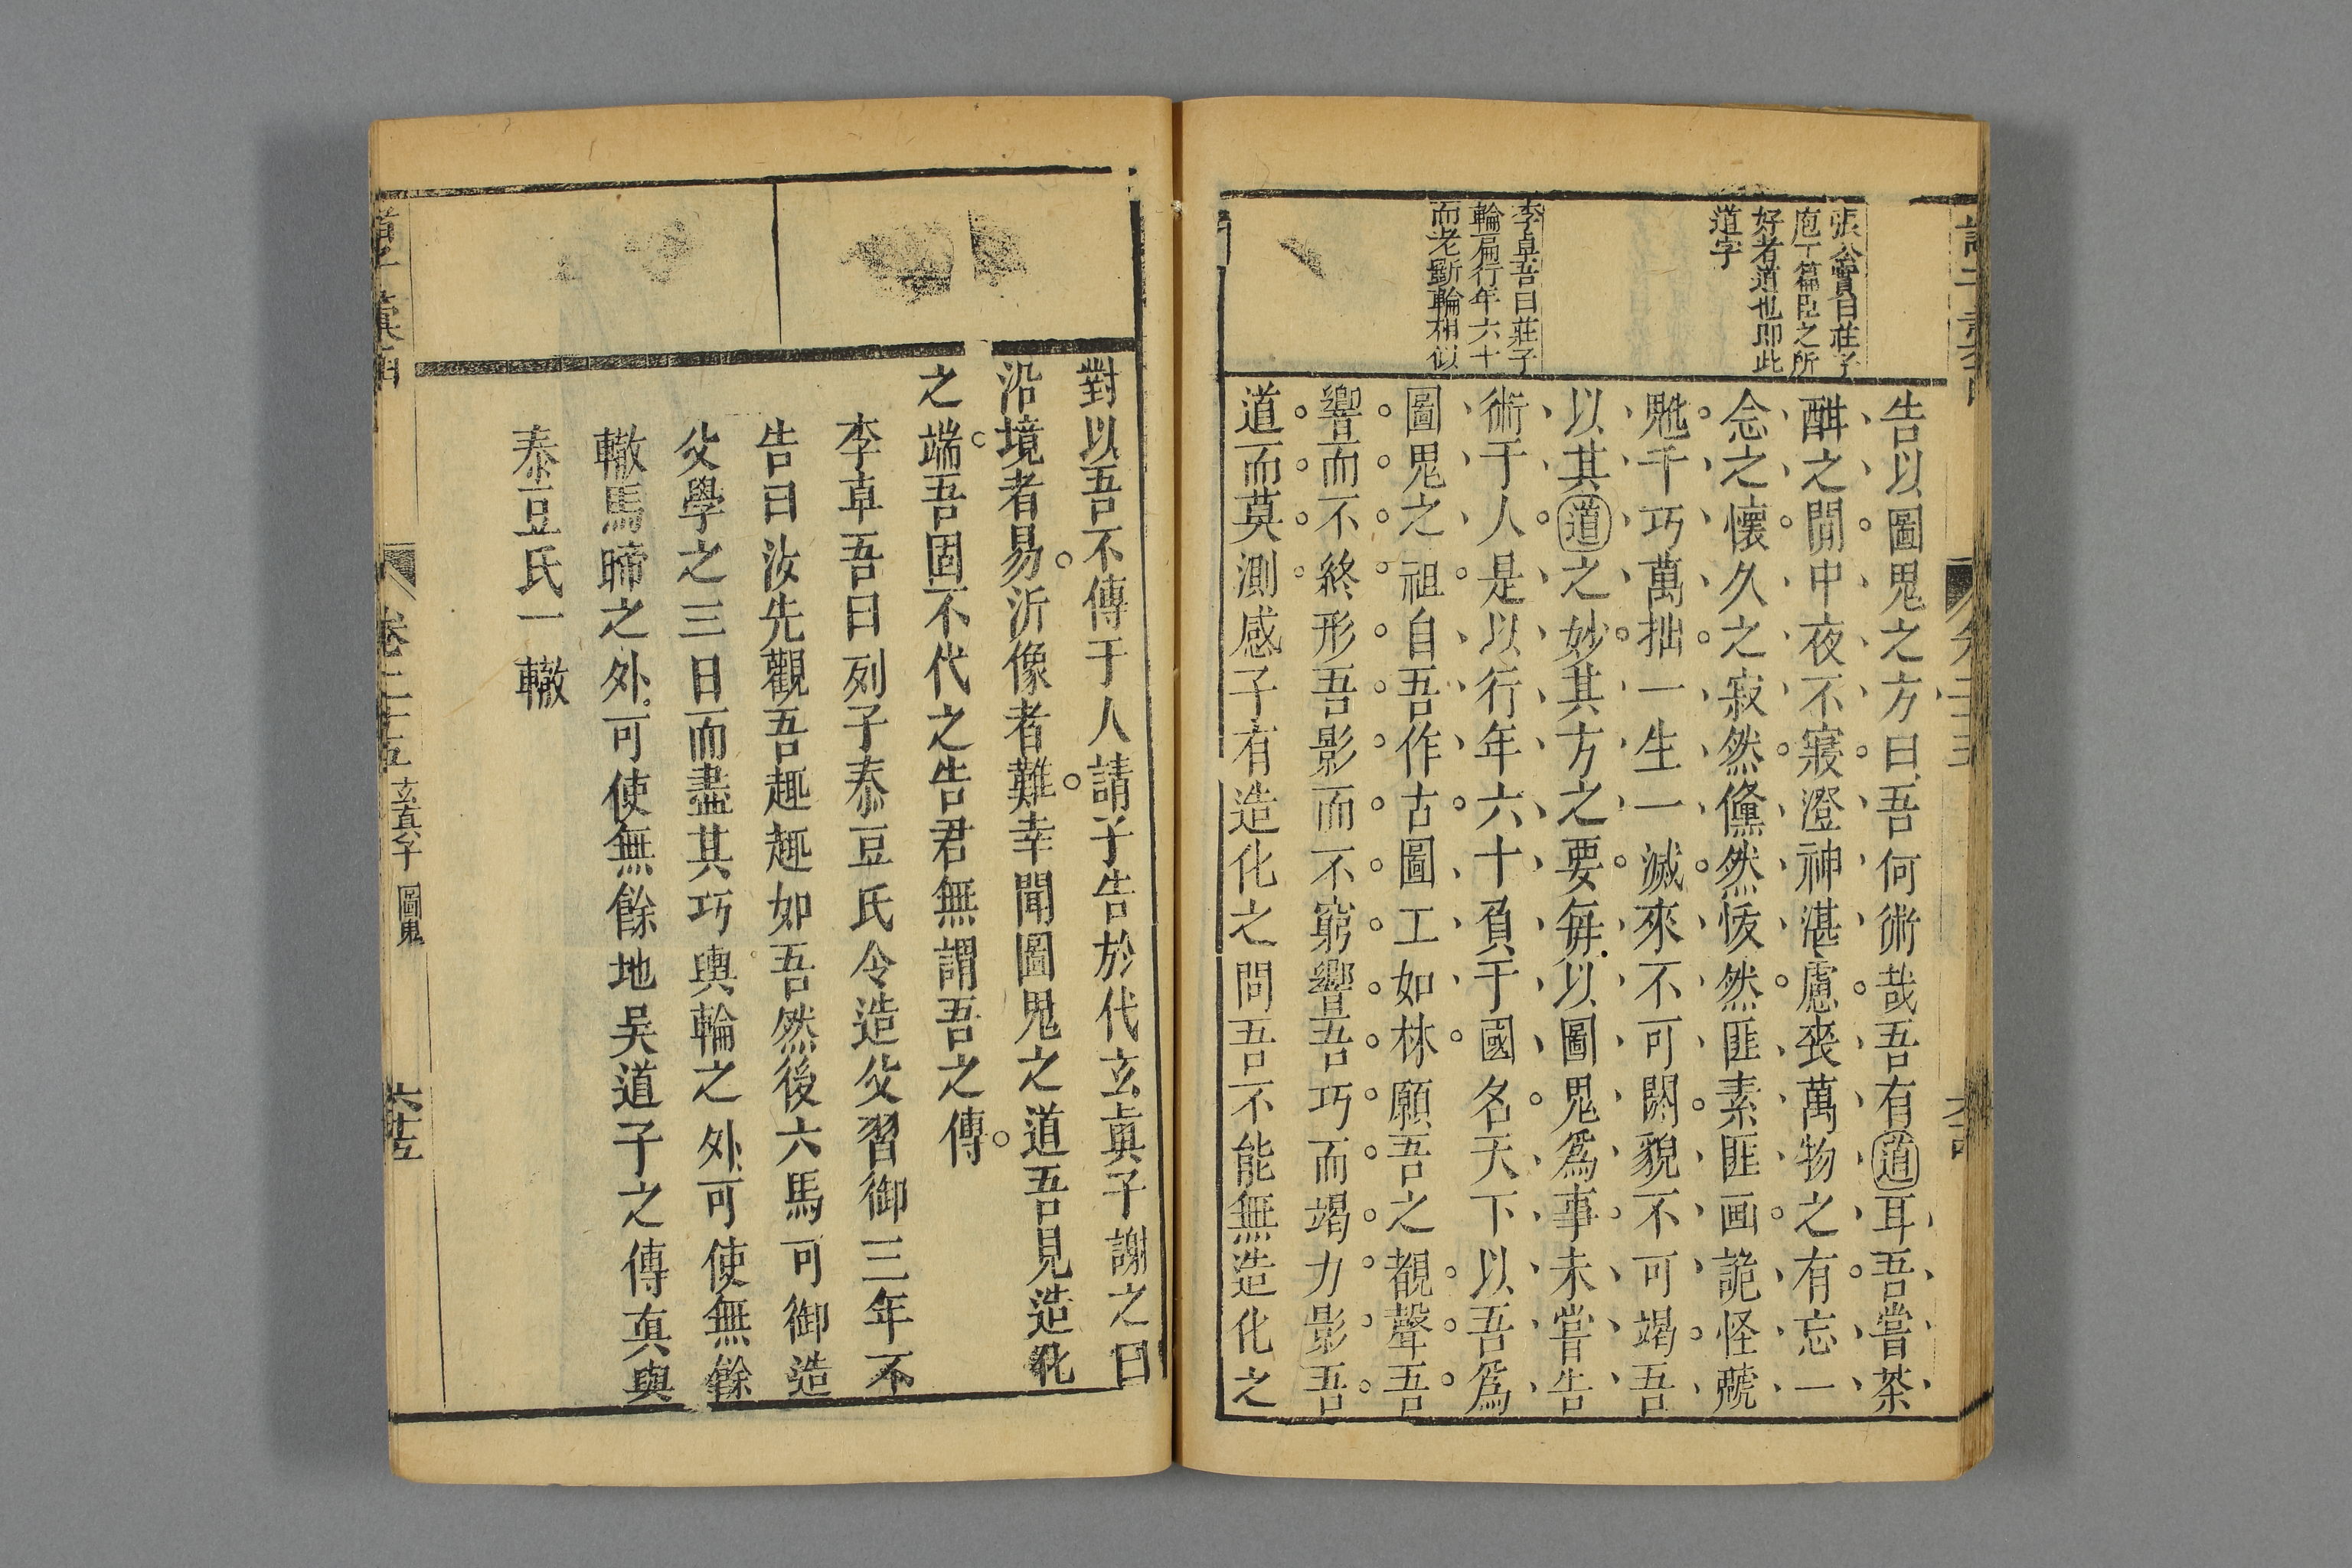 張公實曰莊子
庖丁篇臣之所
好者道也即此
道字
李卓吾曰莊子
輪扁行年六十
而老斲輪相似
告以圖鬼之方曰吾何術哉吾有道耳吾嘗茶
酣之閒中夜不寢澄神湛慮喪萬物之有忘一
念之懷久之寂然儻然恍然匪素匪画詭怪虩
魑千巧萬拙一生一滅來不可閼貌不可竭吾
以其道之妙其方之要每以圖鬼爲事未嘗告
術于人是以行年六十負于國名天下以吾爲
圖鬼之祖自吾作古圖工如林願吾之覩聲吾
響而不終形吾影而不窮響吾巧而竭力影吾
道而莫測感子有造化之問吾不能無造化之
對以吾不傳于人請子告於代玄真子謝之曰
沿境者易泝像者難幸聞圖鬼之道吾見造化
之端吾固不代之告君無謂吾之傳
李卓吾曰列子泰豆氏令造父習御三年不
告曰汝先觀吾趣趣如吾然後六馬可御造
父學之三日而盡其巧輿輪之外可使無餘
轍馬蹄之外可使無餘地吴道子之傳真與
泰豆氏一轍
卷二十五
玄真子
圖鬼